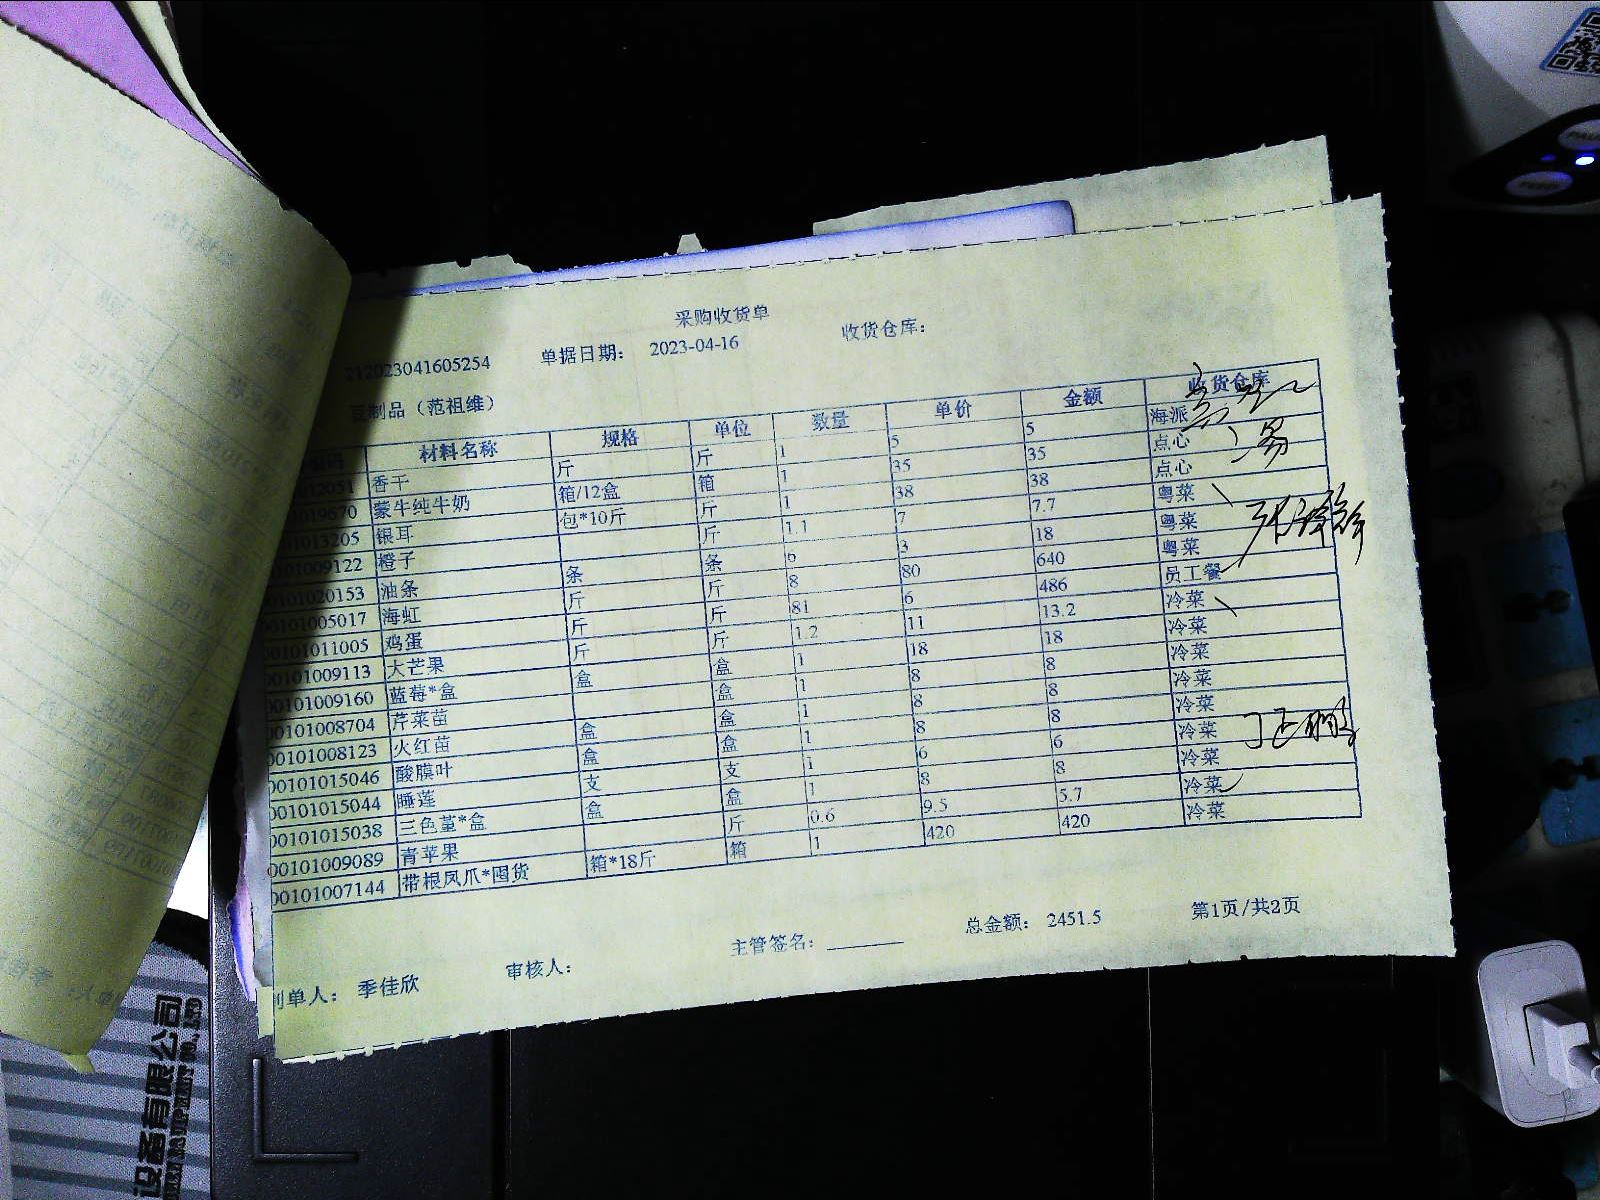 采购收货单
212023041605254 单据日期: 2023-04-16 收货仓库:
豆制品（范祖维）
材料名称 规格 单位 数量 单价 金额 收货仓库
012051 香干 斤 斤 1 5 5 海派
1019670 蒙牛纯牛奶 箱/12盒 箱 1 35 35 点心
01013205 银耳 包*10斤 斤 1 38 38 点心
01009122 橙子 斤 1.1 7 7.7 粤菜
0101020153 油条 条 条 6 3 18 粤菜
0101005017 海虹 斤 斤 8 80 640 粤菜
00101011005 鸡蛋 斤 斤 81 6 486 员工餐
00101009113 大芒果 斤 斤 1.2 11 13.2 冷菜
00101009160 蓝莓*盒 盒 盒 1 18 18 冷菜
00101008704 芹菜苗 盒 1 8 8 冷菜
00101008123 火红苗 盒 盒 1 8 8 冷菜
00101015046 酸膜叶 盒 盒 1 8 8 冷菜
00101015044 睡莲 支 支 1 6 6 冷菜
00101015038 三色堇*盒 盒 盒 1 8 8 冷菜
00101009089 青苹果 斤 0.6 9.5 5.7 冷菜
00101007144 带根凤爪*囤货 箱*18斤 箱 1 420 420 冷菜
制单人: 季佳欣 审核人: 主管签名: 总金额: 2451.5 第1页/共2页
设备有限公司